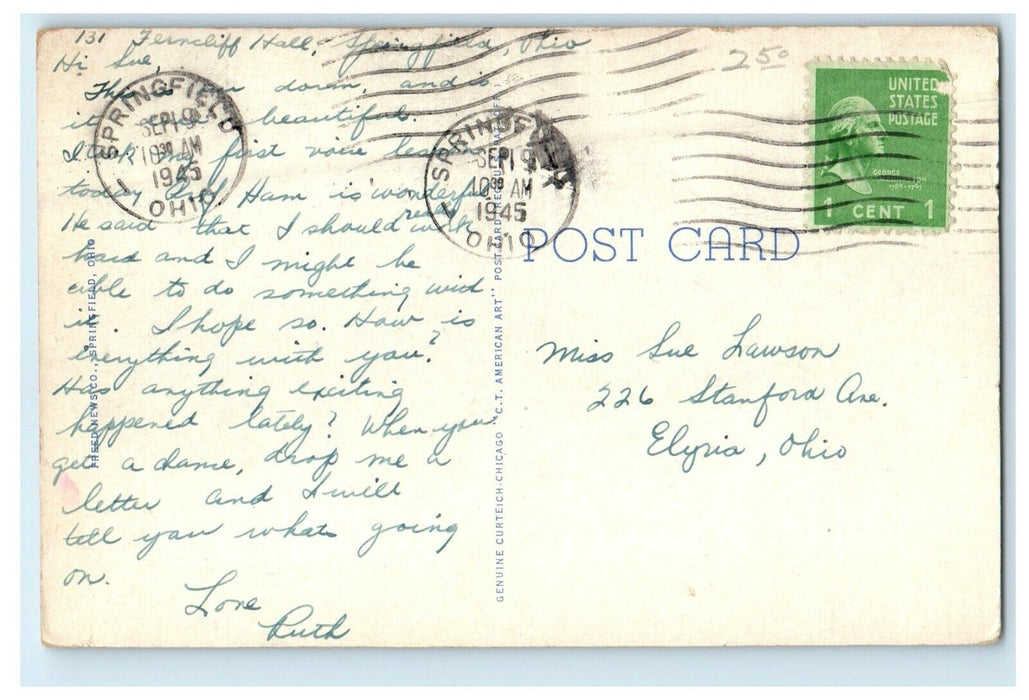 131 Ferncliff Hall, Springfield, Ohio
Hi Sue,
The dorm, and is
it beautiful.
I took my first voice lesson
today. Prof Ham is wonderful.
He said that I should work real
hard and I might be
able to do something with
it. I hope so. How is
everything with you?
Has anything exciting
happened lately? When you
get a chance, drop me a
letter and I will
tell you whats going
on.
Love
Ruth
SPRINGFIELD
SEP 19
10 30 AM
1945
OHIO
SPRINGFIELD
SEP 19
10 30 AM
1945
OHIO
250
UNITED
STATES
POSTAGE
GEORGE
WASHINGTON
1789-1797
1 CENT 1
POST CARD
Miss Sue Lawson
226 Stanford Ave.
Elyria, Ohio
FREED NEWS CO., SPRINGFIELD, OHIO
GENUINE CURTEICH-CHICAGO "C.T. AMERICAN ART" POST CARD (REG. U.S. PAT. OFF.)